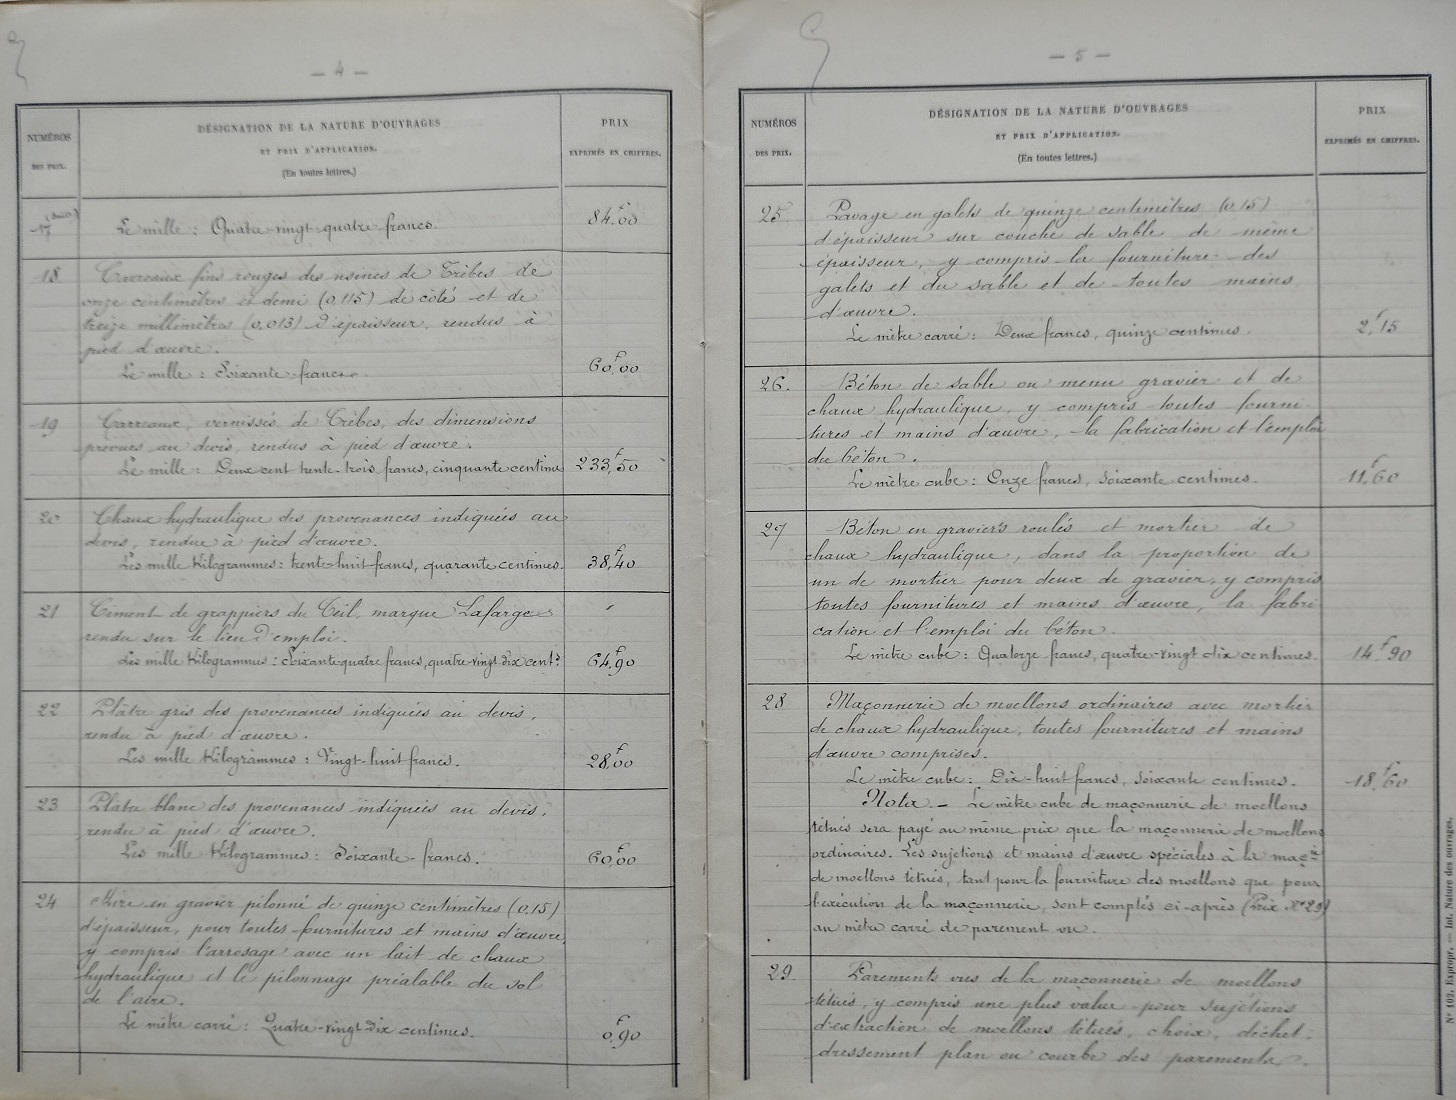 — 4 —
NUMÉROS
DES PRIX.
DÉSIGNATION DE LA NATURE D'OUVRAGES
ET PRIX D'APPLICATION.
(En toutes lettres.)
PRIX
EXPRIMÉS EN CHIFFRES.
17 Le mille : Quatre-vingt-quatre francs. 84f,00
18 Carreaux fins rouges des usines de Trèbes de
onze centimètres et demi (0,115) de côté et de
treize millimètres (0,013) d'épaisseur, rendus à
pied d'œuvre.
Le mille : Soixante francs. 60f,00
19 Carreaux vernissés de Trèbes, des dimensions
prévues au devis, rendus à pied d'œuvre.
Le mille : Deux cent trente-trois francs, cinquante centimes 233f,50
20 Chaux hydraulique des provenances indiquées au
devis, rendue à pied d'œuvre.
Les mille Kilogrammes : trente-huit francs, quarante centimes. 38f,40
21 Ciment de grappiers du Teil, marque Lafarge
rendu sur le lieu d'emploi.
Les mille Kilogrammes : Soixante-quatre francs, quatre-vingt-dix cent.s 64f,90
22 Plâtre gris des provenances indiquées au devis,
rendu à pied d'œuvre.
Les mille Kilogrammes : Vingt-huit francs. 28f,00
23 Plâtre blanc des provenances indiquées au devis,
rendu à pied d'œuvre.
Les mille Kilogrammes : Soixante-francs. 60f,00
24 Aire en gravier pilonné de quinze centimètres (0,15)
d'épaisseur, pour toutes fournitures et mains d'œuvre,
y compris l'arrosage avec un lait de chaux
hydraulique et le pilonnage préalable du sol
de l'aire.
Le mètre carré : Quatre-vingt-dix centimes. 0f,90
— 5 —
NUMÉROS
DES PRIX.
DÉSIGNATION DE LA NATURE D'OUVRAGES
ET PRIX D'APPLICATION.
(En toutes lettres.)
PRIX
EXPRIMÉS EN CHIFFRES.
25 Pavage en galets de quinze centimètres (0,15)
d'épaisseur sur couche de sable de même
épaisseur, y compris la fourniture des
galets et du sable et de toutes mains
d'œuvre.
Le mètre carré : Deux francs, quinze centimes. 2f,15
26. Béton de sable ou menu gravier et de
chaux hydraulique, y compris toutes fourni-
tures et mains d'œuvre, la fabrication et l'emploi
du béton.
Le mètre cube : Onze francs, soixante centimes. 11f,60
27 Béton en graviers roulés et mortier de
chaux hydraulique, dans la proportion de
un de mortier pour deux de gravier, y compris
toutes fournitures et mains d'œuvre, la fabri
cation et l'emploi du béton.
Le mètre cube : Quatorze francs, quatre-vingt dix centimes. 14f,90
28 Maçonnerie de moellons ordinaires avec mortier
de chaux hydraulique, toutes fournitures et mains
d'œuvre comprises.
Le mètre cube : Dix-huit francs, soixante centimes. 18f,60
Nota. — Le mètre cube de maçonnerie de moellons
têtués sera payé au même prix que la maçonnerie de moellons
ordinaires. Les sujétions et mains d'œuvre spéciales à la maç.ie
de moellons têtués, tant pour la fourniture des moellons que pour
l'exécution de la maçonnerie, sont comptés ci-après (Prix N° 29)
au mètre carré de parement vu.
29. Parements vus de la maçonnerie de moellons
têtués, y compris une plus value pour sujétions
d'extraction de moellons têtués, choix, déchet,
dressement plan ou courbe des parements.
N° 103. Expropr. — Int. Nature des ouvrages.